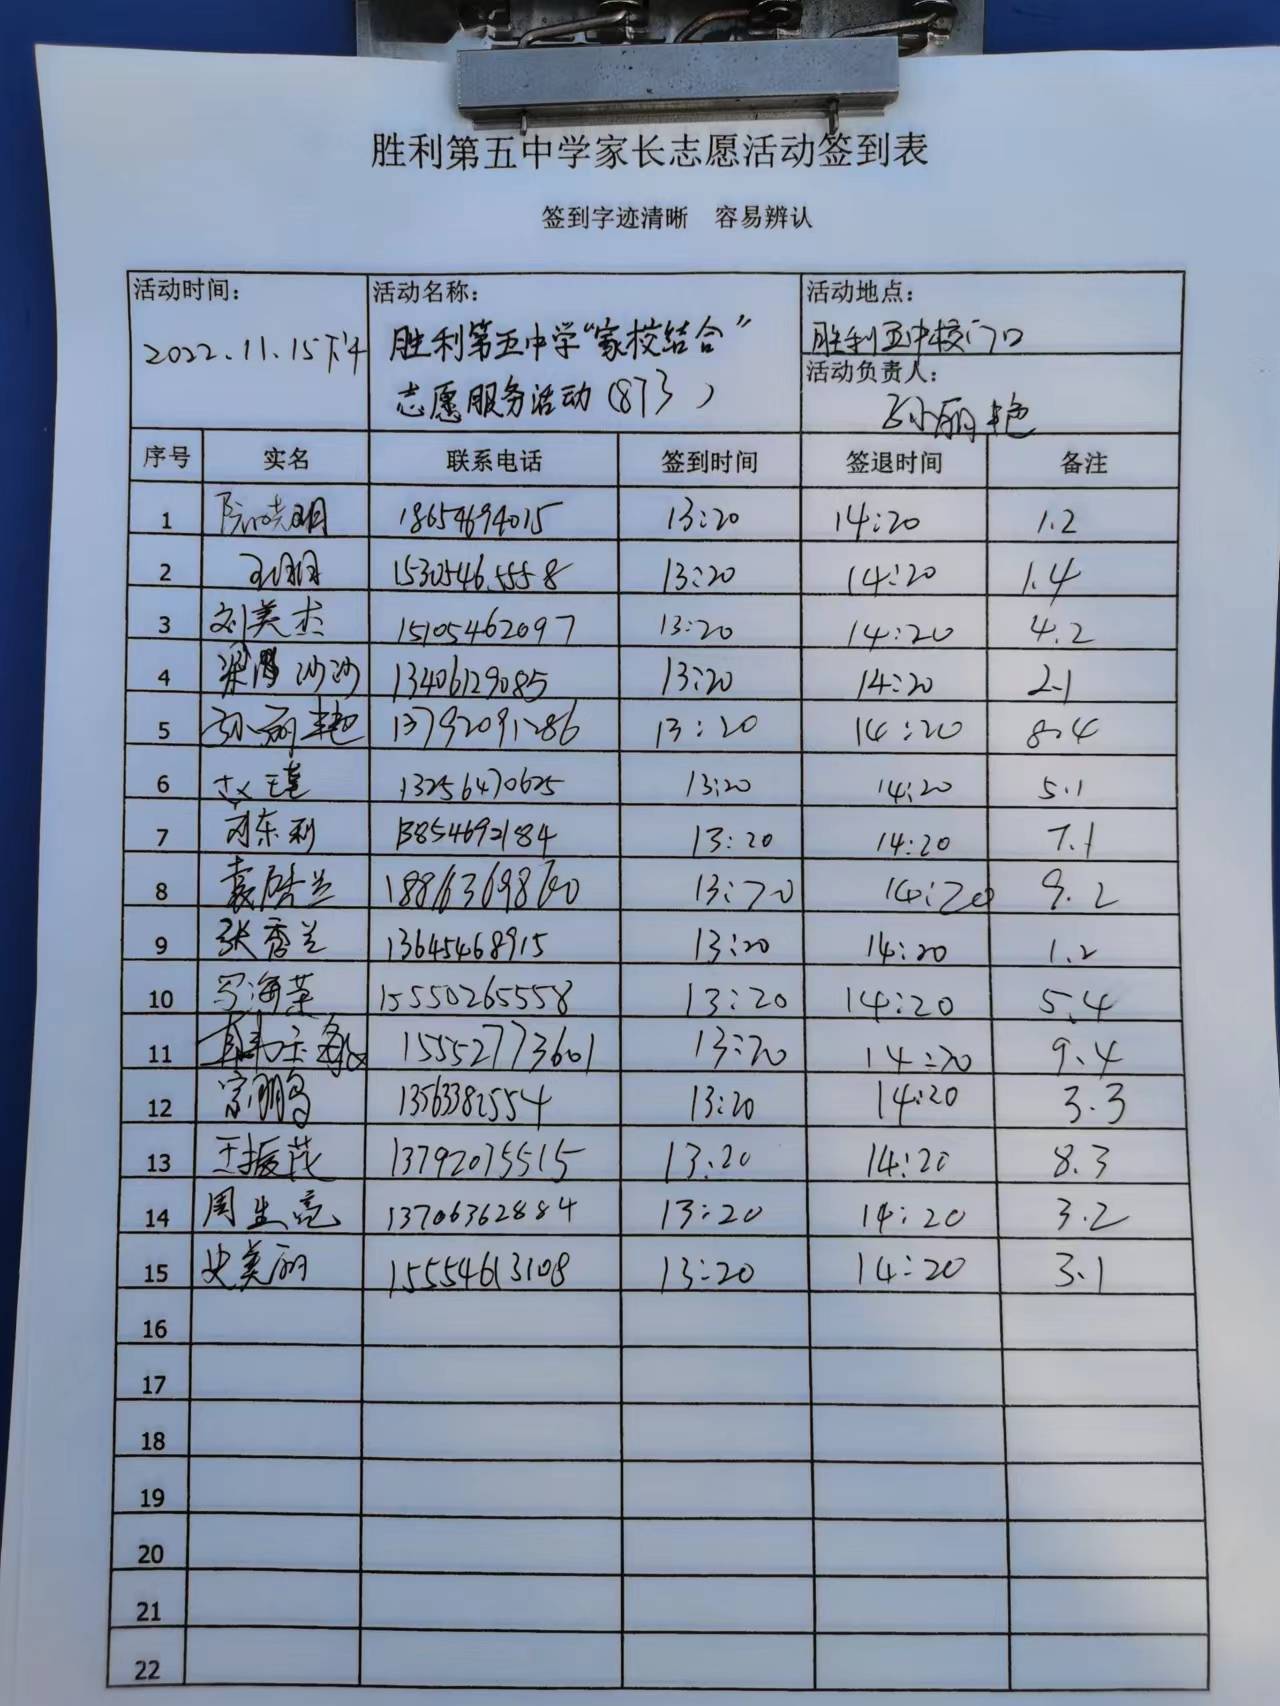 胜利第五中学家长志愿活动签到表
签到字迹清晰 容易辨认
活动时间: 2022.11.15下午
活动名称: 胜利第五中学“家校结合”
志愿服务活动(873)
活动地点:
胜利五中校门口
活动负责人:
孙丽艳
序号 实名 联系电话 签到时间 签退时间 备注
1 阮晓明 18654694015 13:20 14:20 1.2
2 15305465558 13:20 14:20 1.4
3 刘美杰 15105462097 13:20 14:20 4.2
4 梁沙沙 13406129085 13:20 14:20 2.1
5 孙丽艳 13792091286 13:20 14:20 8.4
6 赵瑾 13256470625 13:20 14:20 5.1
7 刘东利 13854692184 13:20 14:20 7.1
8 13:20 14:20 9.2
9 张秀兰 13645468915 13:20 14:20 1.2
10 15550265558 13:20 14:20 5.4
11 15552773601 13:20 14:20 9.4
12 宗鹏鸟 13563382554 13:20 14:20 3.3
13 王振茂 13792075515 13:20 14:20 8.3
14 周生亮 13706362884 13:20 14:20 3.2
15 史美丽 15554613108 13:20 14:20 3.1
16
17
18
19
20
21
22